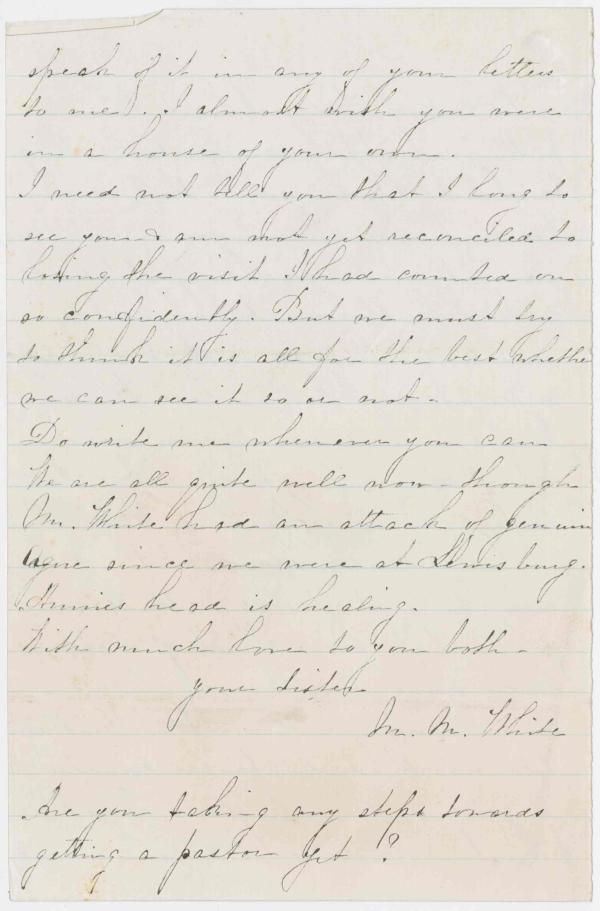 speak of it in any of your letters
to me). I almost wish you were
in a house of your own.
I need not tell you that I long to
see you & am not yet reconciled to
losing the visit I had counted on
so confidently. But we must try
to think it is all for the best whether
we can see it so or not -
Do write me whenever you can
We are all quite well now - though
Mr. White had an attack of genuin
Ague since we were at Lewisburg.
Annies head is healing.
With much love to you both -
your sister
M. M. White
Are you taking any steps towards
getting a pastor yet ?